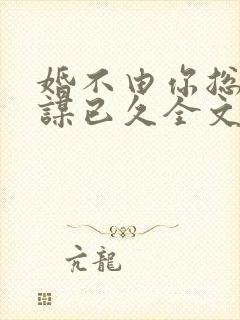 婚不由你总
谋已久全文
亢龍